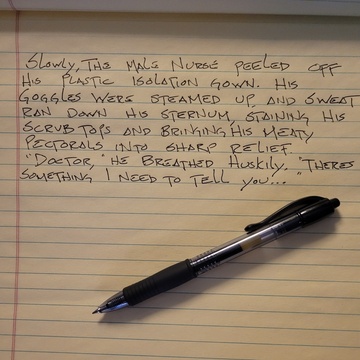 Slowly, The Male Nurse peeled off
His Plastic Isolation Gown. His
Goggles were steamed up, and sweat
ran down his sternum, staining his
scrub tops and bringing his meaty
pectorals into sharp relief.
"Doctor," he breathed huskily. "Theres
something I need to tell you..."